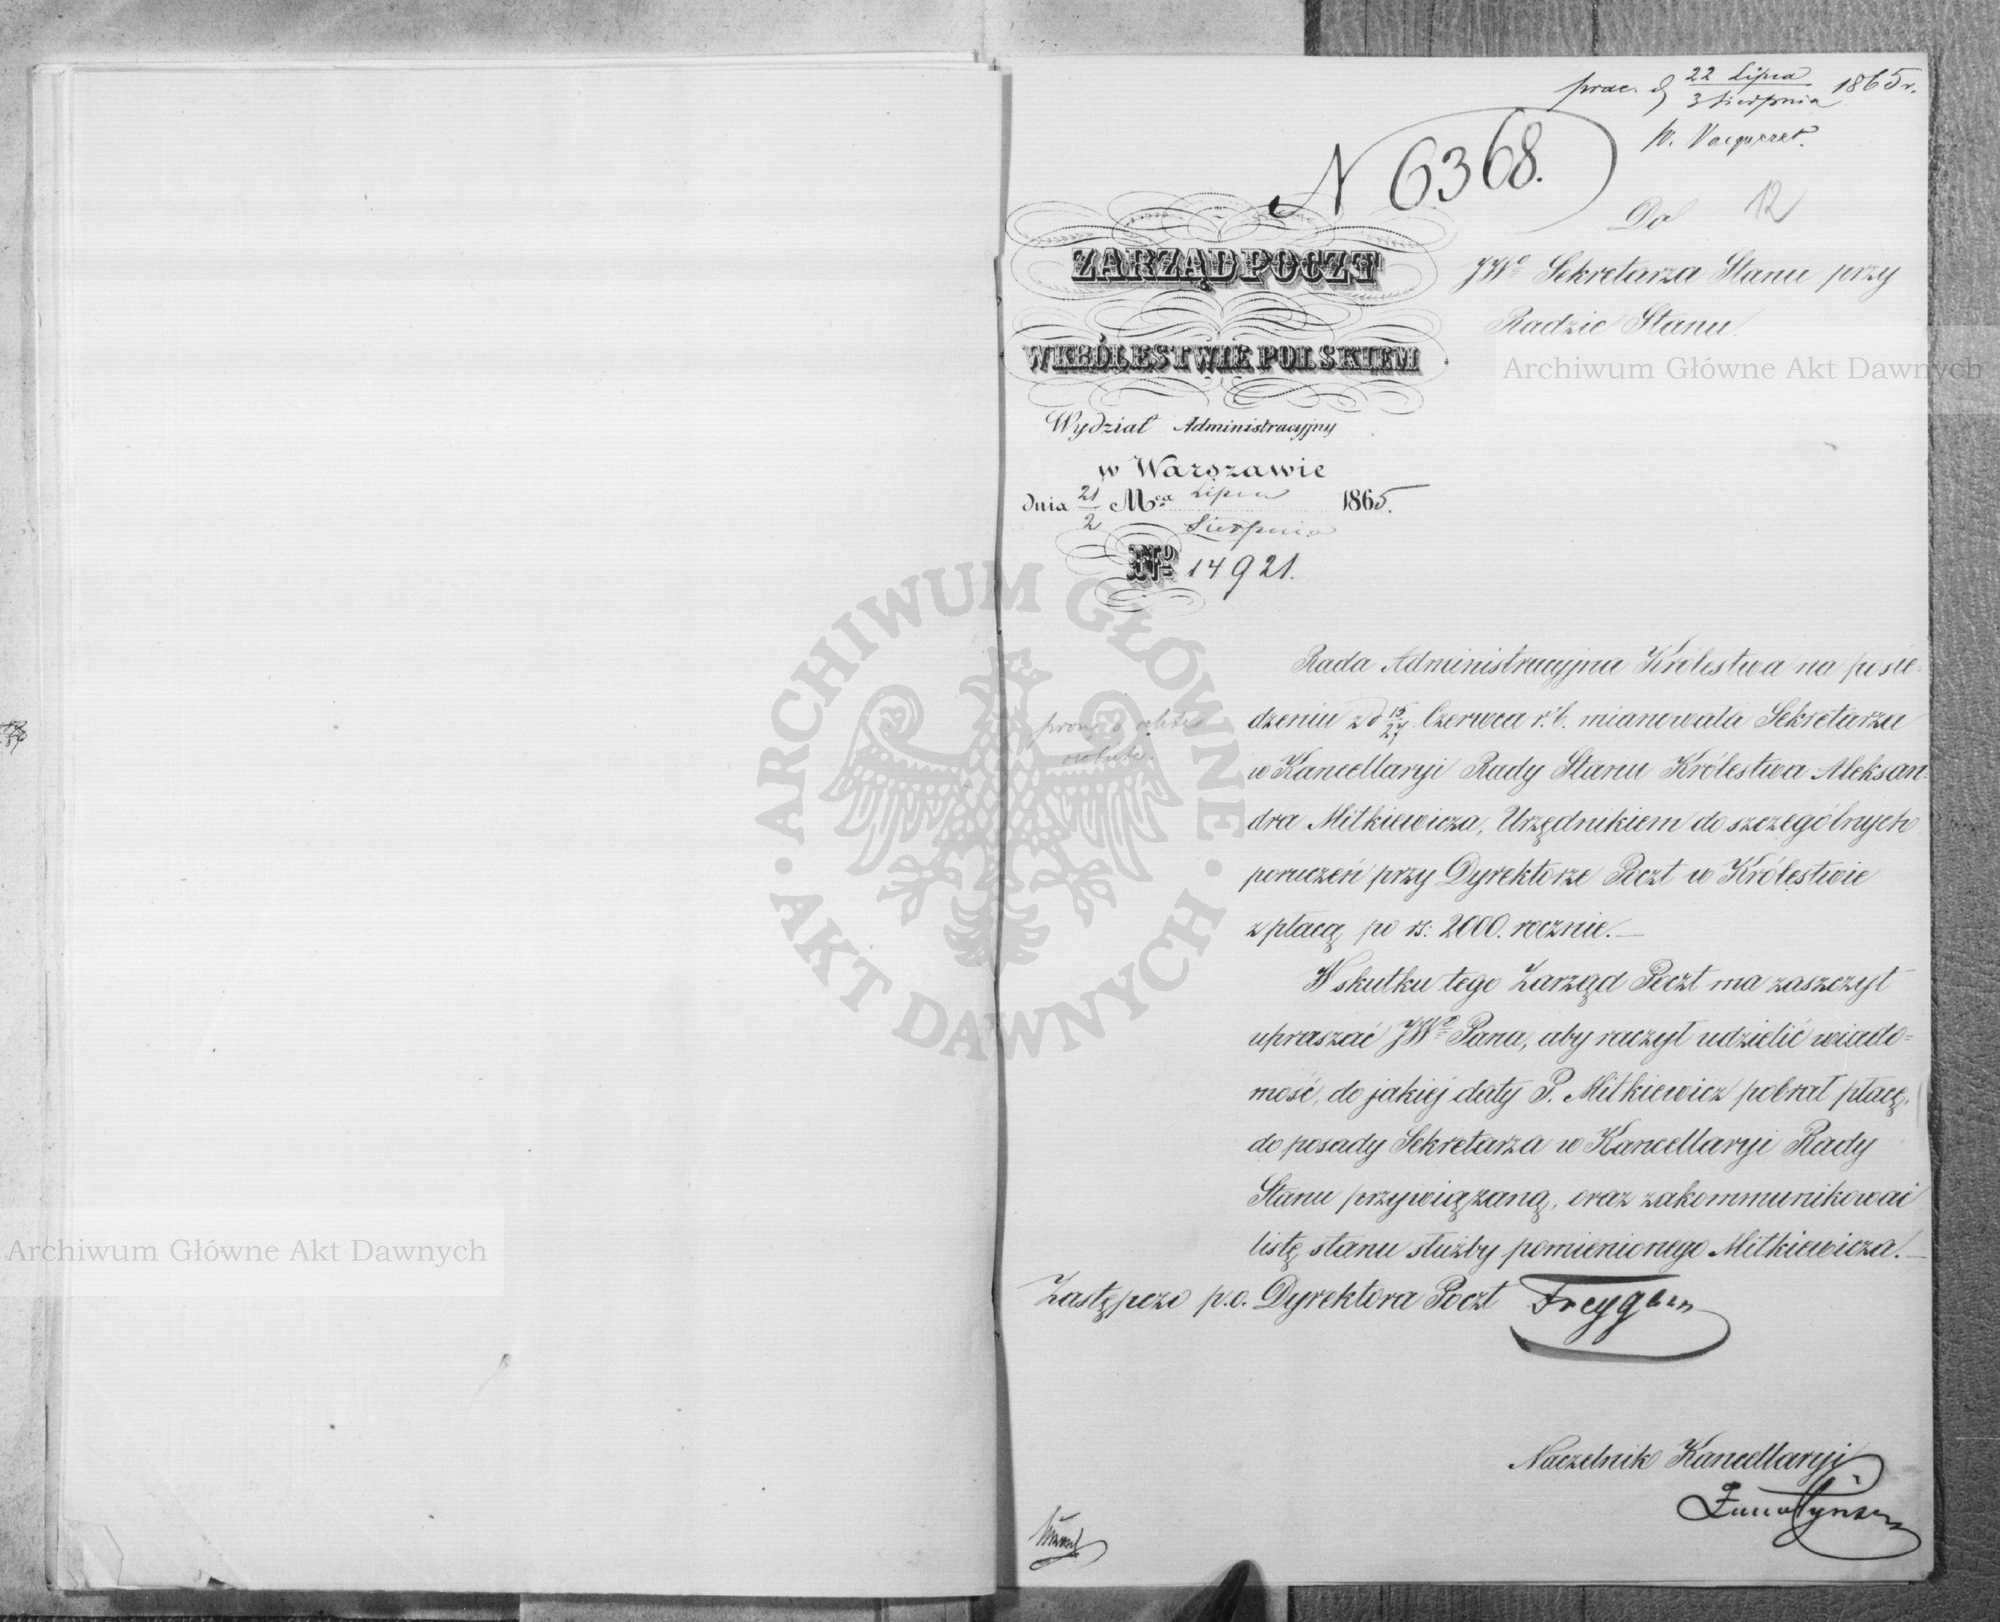 22 Lipca
3 Sierpnia 1865 r.
N 6368.
12
Do
JWo Sekretarza Stanu przy
Radzie Stanu
ZARZĄD POCZT
W KRÓLESTWIE POLSKIEM
Wydział Administracyjny
w Warszawie
dnia 21/2 Mca Lipca/Sierpnia 1865.
No 14921.
Rada Administracyjna Królestwa na posie-
dzeniu z d 15/27 Czerwca r. b. mianowała Sekretarza
w Kancellaryi Rady Stanu Królestwa Aleksan-
dra Mitkiewicza, Urzędnikiem do szczególnych
poruczeń przy Dyrektorze Poczt w Królestwie
z płacą po rs: 2000. rocznie.—
W skutku tego Zarząd Poczt ma zaszczyt
upraszać JWo Pana, aby raczył udzielić wiado-
mość, do jakiej daty P. Mitkiewicz pobrał płacę,
do posady Sekretarza w Kancellaryi Rady
Stanu przywiązaną, oraz zakommunikować
listę stanu służby pomienionego Mitkiewicza.—
Zastępca p.o. Dyrektora Poczt
Naczelnik Kancellaryi
Archiwum Główne Akt Dawnych
Archiwum Główne Akt Dawnych
ARCHIWUM GŁÓWNE AKT DAWNYCH